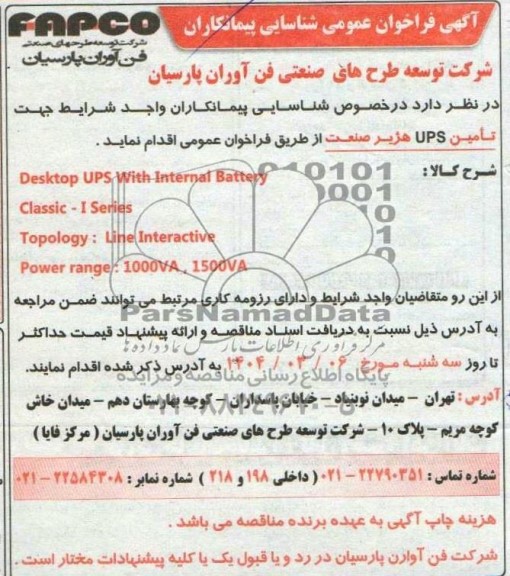 آگهی فراخوان عمومی شناسایی پیمانکاران
FAPCO
شرکت توسعه طرح‌های صنعتی
فن آوران پارسیان
شرکت توسعه طرح های صنعتی فن آوران پارسیان
در نظر دارد درخصوص شناسایی پیمانکاران واجد شرایط جهت
تأمین UPS هژبر صنعت از طریق فراخوان عمومی اقدام نماید .
شرح کالا :
Desktop UPS With Internal Battery
Classic - I Series
Topology : Line Interactive
Power range : 1000VA , 1500VA
از این رو متقاضیان واجد شرایط و دارای رزومه کاری مرتبط می توانند ضمن مراجعه
ParsNamadData
به آدرس ذیل نسبت به دریافت اسناد مناقصه و ارائه پیشنهاد قیمت حداکثر
مرکز فرآوری اطلاعات پارس نماد داده ها
تا روز سه شنبه مورخ ۱۴۰۴ / ۰۳ / ۰۶ به آدرس ذکر شده اقدام نمایند.
پایگاه اطلاع رسانی مناقصه و مزایده
آدرس : تهران – میدان نوبنیاد – خیابان پاسداران – کوچه بهارستان دهم – میدان خاش
کوچه مریم – پلاک ۱۰ – شرکت توسعه طرح های صنعتی فن آوران پارسیان ( مرکز فابا )
شماره تماس : ۲۲۷۹۰۳۵۱ – ۰۲۱ ( داخلی ۱۹۸ و ۲۱۸ ) شماره نمابر : ۲۲۵۸۴۳۰۸ – ۰۲۱
هزینه چاپ آگهی به عهده برنده مناقصه می باشد .
شرکت فن آوارن پارسیان در رد و یا قبول یک یا کلیه پیشنهادات مختار است .